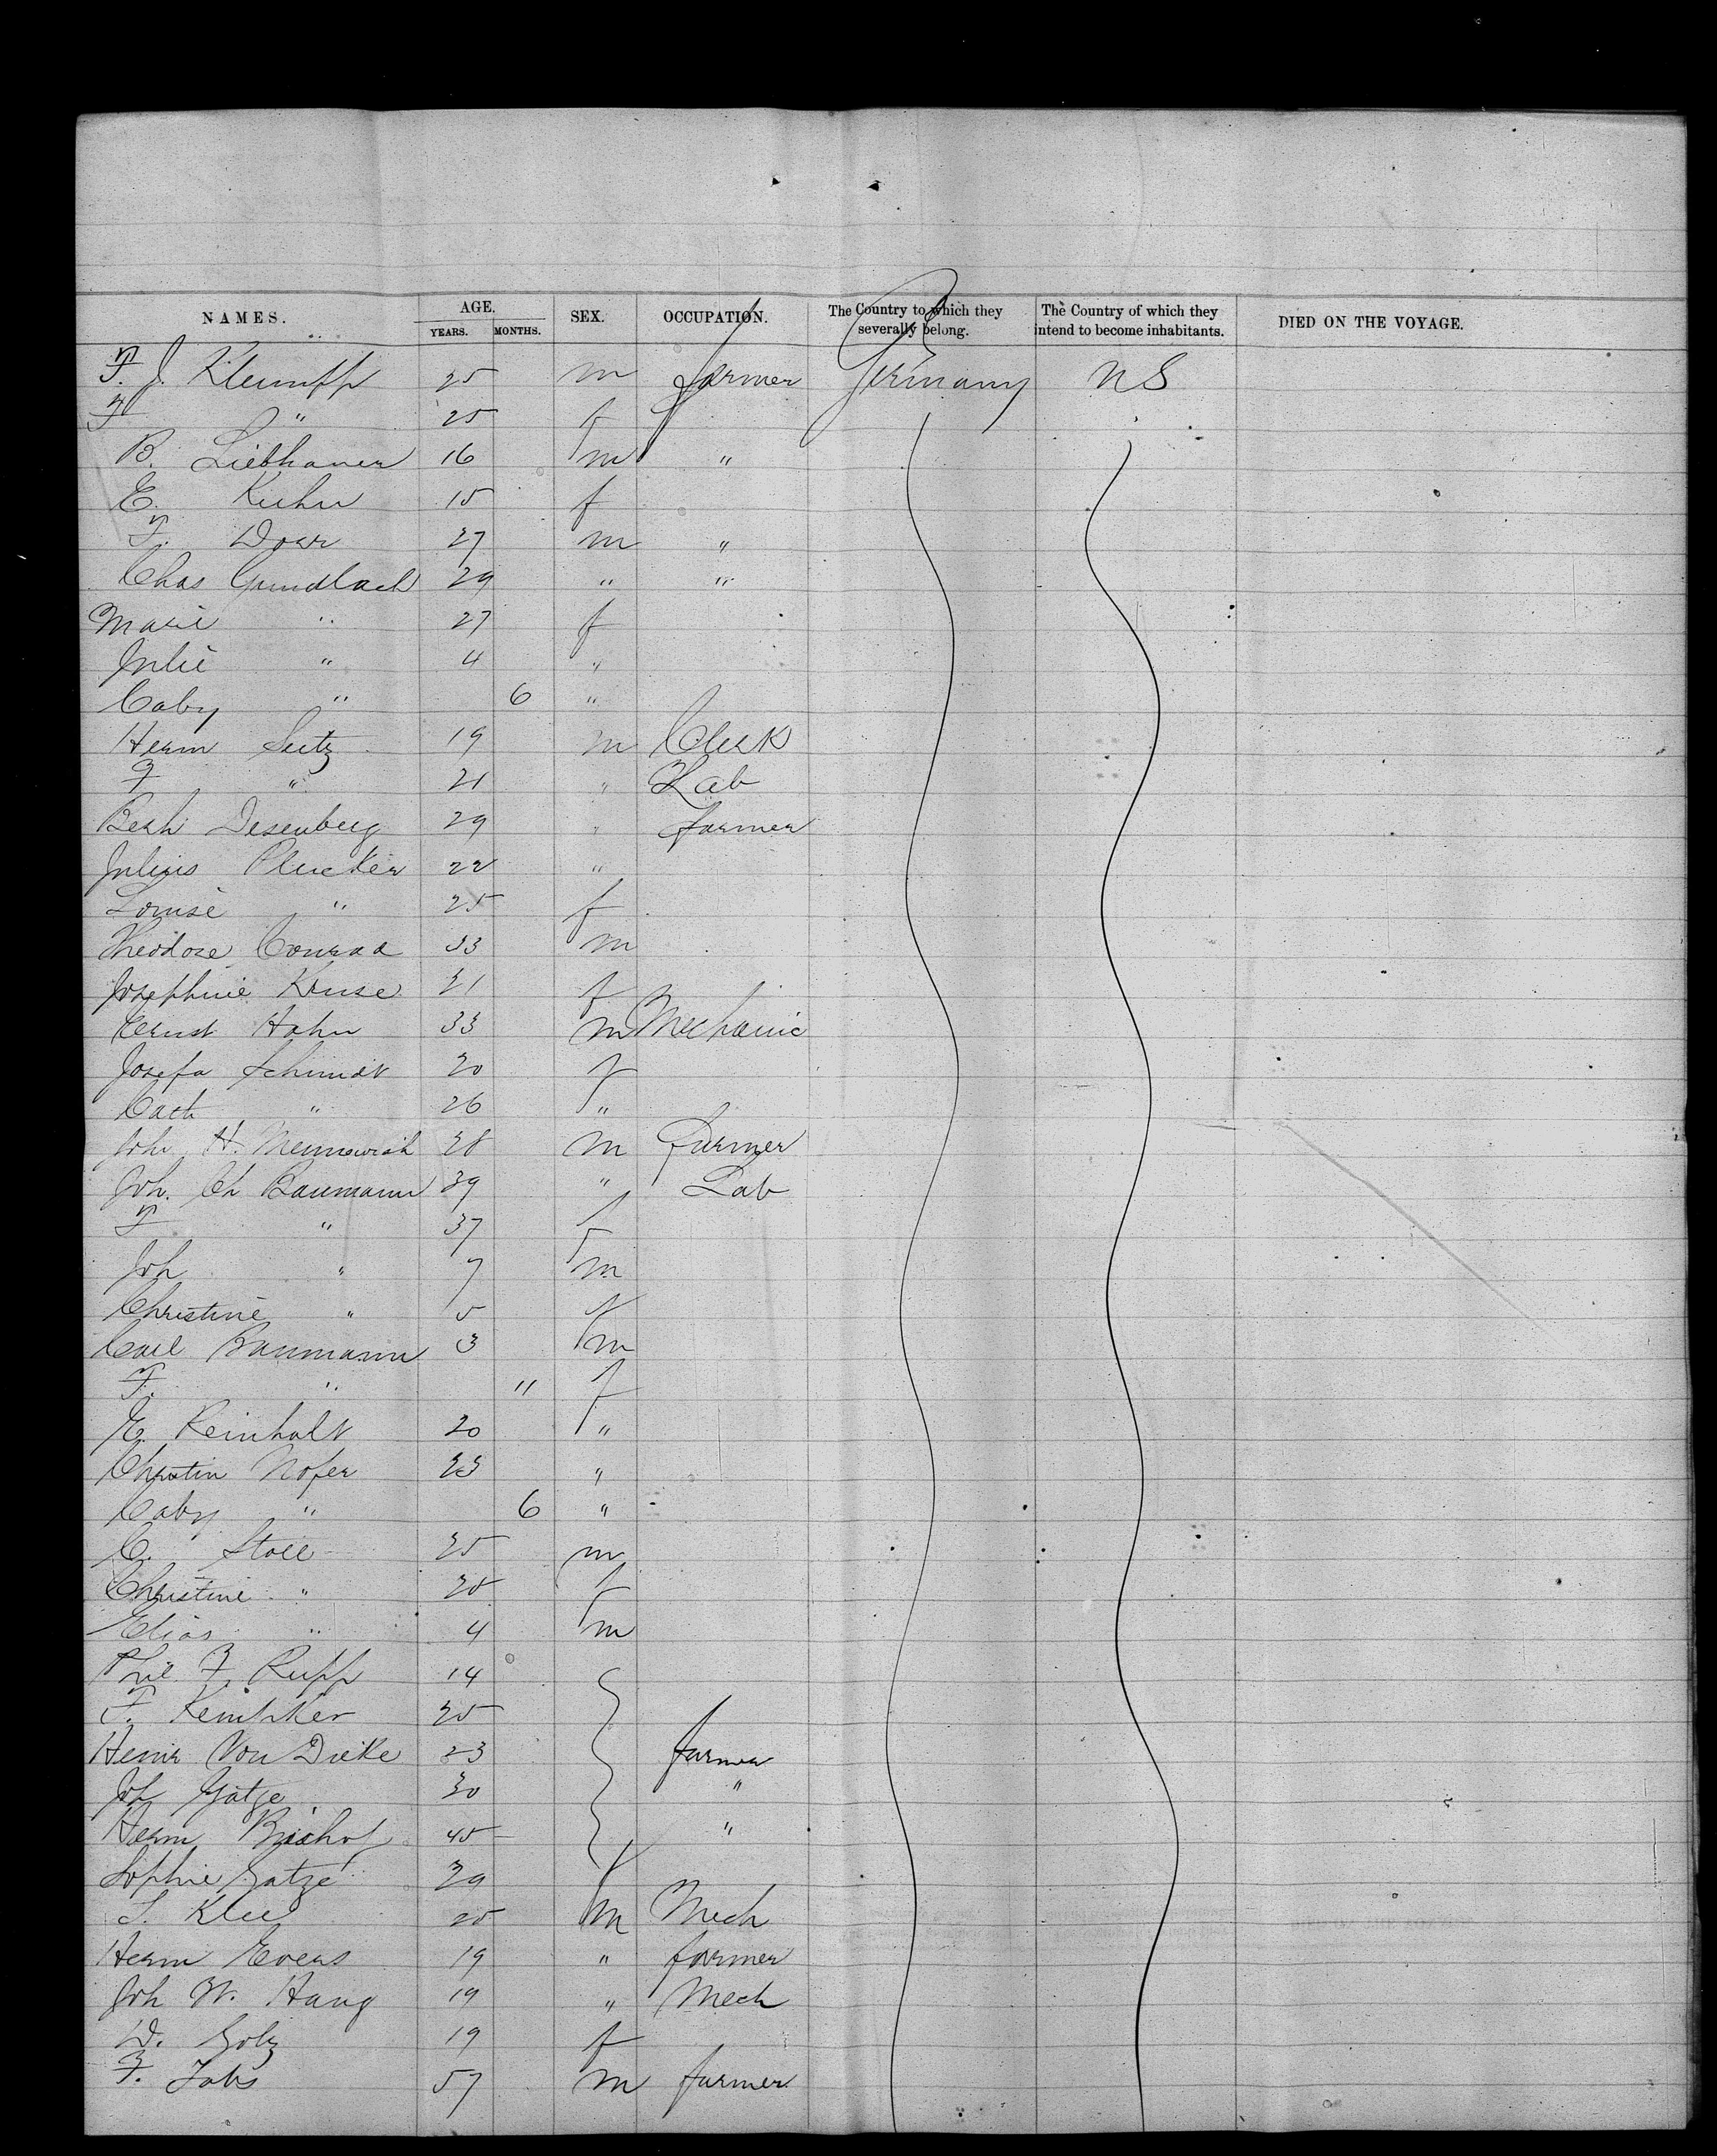 NAMES. AGE. SEX. OCCUPATION. The Country to which they severally belong. The Country of which they intend to become inhabitants. DIED ON THE VOYAGE.
YEARS. MONTHS.
F. J. Klumpp 25 m farmer Germany US
F " 25 f
B. Liebhauer 16 m "
E. Kuhn 15 f
F. Dorr 27 m "
Chas Gundlach 29 " "
Marie " 27 f
Julie " 4 "
Baby " 6 "
Herm Seitz 19 m Clerk
F " 21 " Lab
Berh Desenberg 29 " farmer
Julius Plucker 22 "
Louise " 25 f
Theodore Conrad 33 m
Josephine Kruse 21 f
Ernst Hahn 33 m Mechanic
Josefa Schmidt 20 f
Cath " 26 "
Joh H. 28 m farmer
Joh. Ch Baumann 39 " Lab
F " 37 f
Joh " 7 m
Christine " 5 f
Carl Baumann 3 m
F. " 11 f
E. Reinhalt 20 "
Christin Nofer 23 "
Baby " 6 "
C. Stoll 25 m
Christine " 28 f
Elias " 4 m
Phil F. Rupp 14
F. 25
Heinr Von Dieke 23 farmer
Joh Gatze 30 "
Herm Bischof 45 "
Sophie Gatze 29 f
S. Klee 25 m Mech
Herm Evers 19 " farmer
Joh W. Haug 19 " Mech
D. Golz 19 f
F. Jabs 57 m farmer